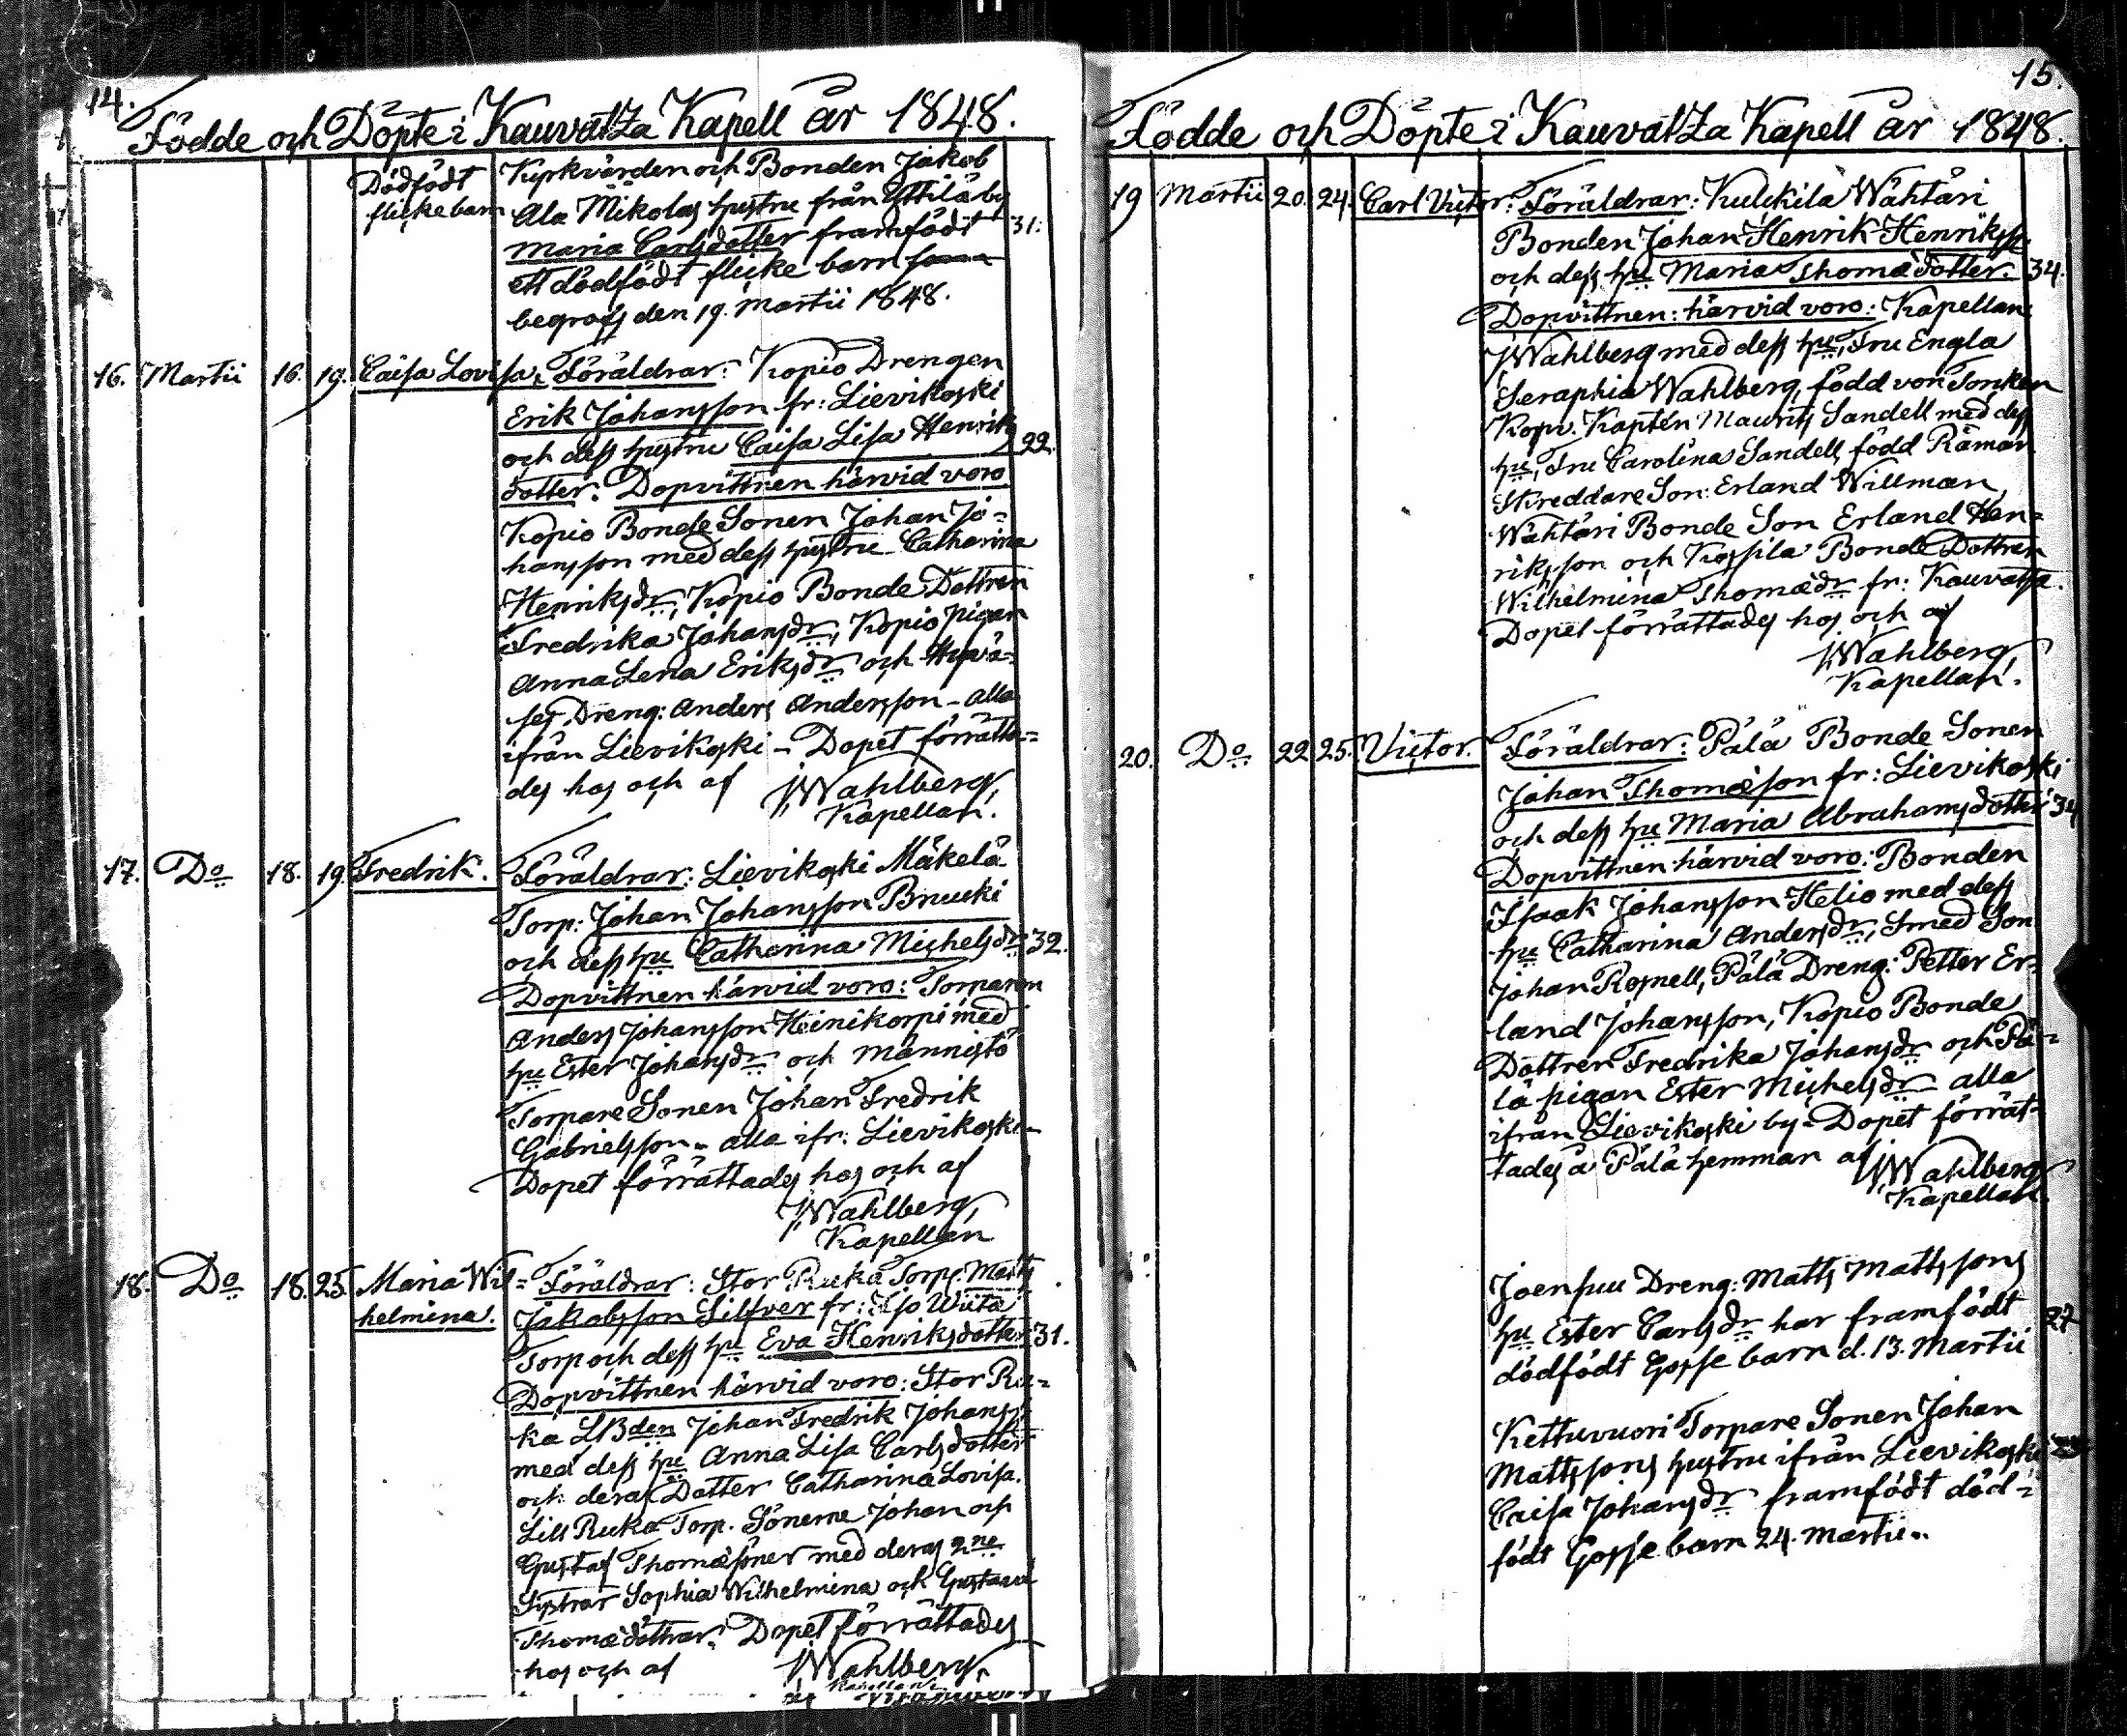 14.
Födde och Döpte i Kauvatza Kapell år 1848.
Dödfödt
flickebarn
Kyrkvärden och Bonden Jakob
Ala Mikolas hustru från Yttilä by
Maria Carlsdotter framfödt 31.
ett dödfödt flicke barn som
begrofs den 19. Martii 1848.
16. Martii 16. 19. Caisa Lovisa. Föräldrar: Kopio Drengen
Erik Johansson fr: Lievikoski
och dess hustru Caisa Lisa Henriks 22.
dotter. Dopvittnen härvid voro
Kopio Bonde Sonen Johan Jo=
hansson med dess hustru Catharina
Henriksdr, Kopio Bonde Dottren
Fredrika Johansdr, Kopio pigan
Anna Lena Eriksdr och
Dreng: Anders Andersson - alla
ifrån Lievikoski - Dopet förrätta=
des hos och af JWahlberg,
Kapellan.
17. Do 18. 19. Fredrik. Föräldrar: Lievikoski Mäkelä
Torp: Johan Johansson Bruuki
och dess hu Catharina Michelsdr 32.
Dopvittnen härvid voro: Torparen
Anders Johansson Heinikorpi med
hu Ester Johansdr och Männistö
Torpare Sonen Johan Fredrik
Gabrielsson - alla ifr: Lievikoski -
Dopet förrättades hos och af
JWahlberg,
Kapellan
18. Do 18. 25. Maria Wil= Föräldrar: Stor Ruka Torp: Matts
helmina. Jakobsson Silfver fr: Iso Wiita
Torp och dess hu Eva Henriksdotter 31.
Dopvittnen härvid voro: Stor Ru=
ka LBden Johan Fredrik Johanss
med dess hu Anna Lisa Carlsdotter
och deras Dotter Catharina Lovisa.
Lill Ruka Torp. Sönerne Johan och
Gustaf Thomæsöner med deras 2ne
Systrar Sophia Wilhelmina och Gustava
Thomædöttrar. Dopet förrättades
hos och af JWahlberg,
Kapellan.
15.
Födde och Döpte i Kauvatza Kapell år 1848.
19 Martii 20. 24. Carl Victor: Föräldrar: Kulckila Wähtäri
Bonden Johan Henrik Henriksso
och dess hu Maria Thomædotter. 34.
Dopvittnen: härvid voro: Kapellan
JWahlberg med dess hu, Fru Engla
Seraphia Wahlberg, född von
Kopv. Kaptén Maurits Sandell med dess
hu, Fru Carolina Sandell, född
Skreddare Son: Erland Willman,
Wähtäri Bonde Son Erland Hen=
riksson och Kossila Bonde Dottren
Wilhelmina Thomædr fr: Kauvatsa.
Dopet förrättades hos och af
JWahlberg,
Kapellan.
20. Do 22 25. Victor. Föräldrar: Pälä Bonde Sonen
Johan Thomæson fr: Lievikoski
och dess hu Maria Abrahamsdotter 34
Dopvittnen härvid voro: Bonden
Isaak Johansson Helio med dess
hu Catharina Andersdr, Smed Son
Johan Rosnell, Pälä Dreng: Petter Er=
land Johansson, Kopio Bonde
Dottren Fredrika Johansdr och Pä=
lä pigan Ester Michelsdr - alla
ifrån Lievikoski by - Dopet förrät=
tades å Pälä hemman af JWahlberg
Kapellan.
Joensuu Dreng: Matts Mattssons
hu Ester Carlsdr har framfödt 27
dödfödt Gosse barn d. 13. Martii
Kettuvuori Torpare Sonen Johan
Mattssons hustru ifrån Lievikoski
Caisa Johansdr framfödt död=
födt Gosse barn 24. Martii.